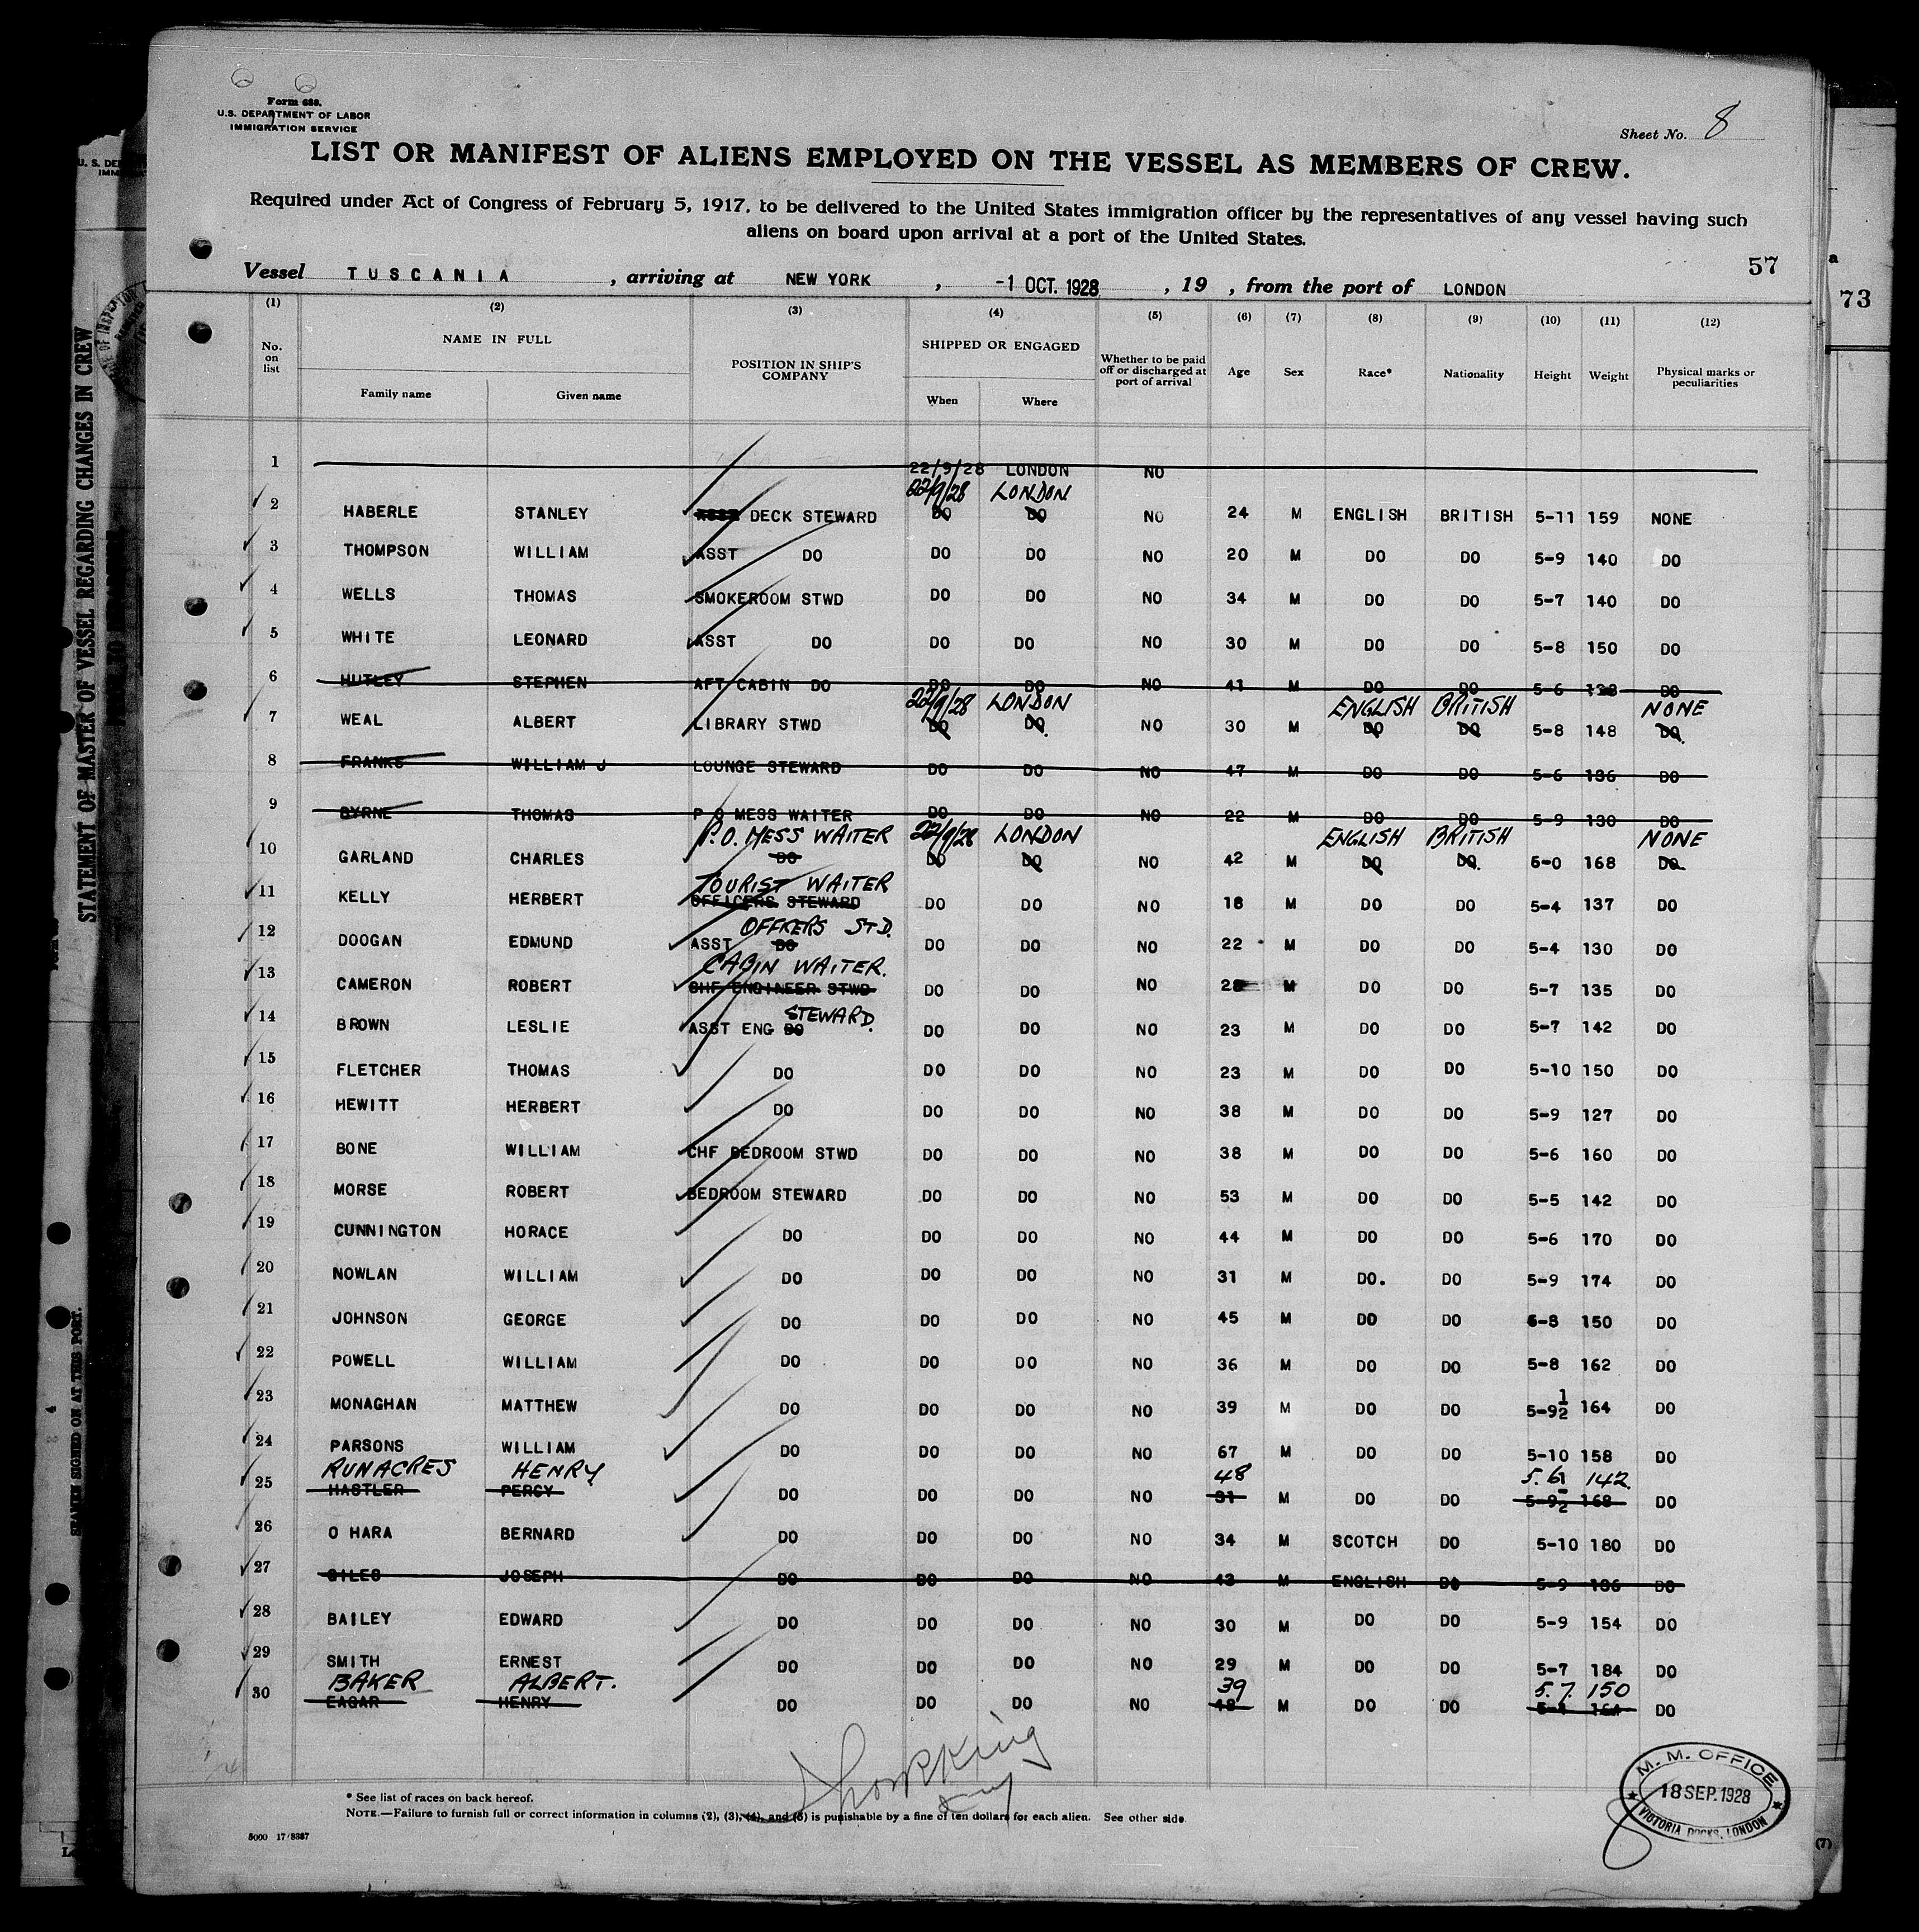 Form 689.
U.S. DEPARTMENT OF LABOR
IMMIGRATION SERVICE
Sheet No. 8
LIST OR MANIFEST OF ALIENS EMPLOYED ON THE VESSEL AS MEMBERS OF CREW.
Required under Act of Congress of February 5, 1917, to be delivered to the United States immigration officer by the representatives of any vessel having such
aliens on board upon arrival at a port of the United States.
57
Vessel TUSCANIA, arriving at NEW YORK, -1 OCT. 1928, 19 , from the port of LONDON
73
(1) (2) (3) (4) (5) (6) (7) (8) (9) (10) (11) (12)
No. on list NAME IN FULL POSITION IN SHIP'S COMPANY SHIPPED OR ENGAGED Whether to be paid off or discharged at port of arrival Age Sex Race* Nationality Height Weight Physical marks or peculiarities
Family name Given name When Where
1 22/9/28 LONDON NO
22/9/28 LONDON
2 HABERLE STANLEY DECK STEWARD DO DO NO 24 M ENGLISH BRITISH 5-11 159 NONE
3 THOMPSON WILLIAM ASST DO DO DO NO 20 M DO DO 5-9 140 DO
4 WELLS THOMAS SMOKEROOM STWD DO DO NO 34 M DO DO 5-7 140 DO
5 WHITE LEONARD ASST DO DO DO NO 30 M DO DO 5-8 150 DO
6 HUTLEY STEPHEN AFT CABIN DO DO DO NO 41 M DO DO 5-6 DO
22/9/28 LONDON ENGLISH BRITISH NONE
7 WEAL ALBERT LIBRARY STWD DO DO NO 30 M DO DO 5-8 148 DO
8 FRANKS WILLIAM J LOUNGE STEWARD DO DO NO 47 M DO DO 5-6 136 DO
9 BYRNE THOMAS P O MESS WAITER DO DO NO 22 M DO DO 5-9 130 DO
P.O. MESS WAITER 22/9/28 LONDON ENGLISH BRITISH NONE
10 GARLAND CHARLES DO DO DO NO 42 M DO DO 6-0 168 DO
TOURIST WAITER
11 KELLY HERBERT OFFICERS STEWARD DO DO NO 18 M DO DO 5-4 137 DO
OFFKERS STD.
12 DOOGAN EDMUND ASST DO DO DO NO 22 M DO DO 5-4 130 DO
CABIN WAITER.
13 CAMERON ROBERT CHF ENGINEER STWD DO DO NO 28 M DO DO 5-7 135 DO
STEWARD.
14 BROWN LESLIE ASST ENG DO DO DO NO 23 M DO DO 5-7 142 DO
15 FLETCHER THOMAS DO DO DO NO 23 M DO DO 5-10 150 DO
16 HEWITT HERBERT DO DO DO NO 38 M DO DO 5-9 127 DO
17 BONE WILLIAM CHF BEDROOM STWD DO DO NO 38 M DO DO 5-6 160 DO
18 MORSE ROBERT BEDROOM STEWARD DO DO NO 53 M DO DO 5-5 142 DO
19 CUNNINGTON HORACE DO DO DO NO 44 M DO DO 5-6 170 DO
20 NOWLAN WILLIAM DO DO DO NO 31 M DO. DO 5-9 174 DO
21 JOHNSON GEORGE DO DO DO NO 45 M DO DO 5-8 150 DO
22 POWELL WILLIAM DO DO DO NO 36 M DO DO 5-8 162 DO
23 MONAGHAN MATTHEW DO DO DO NO 39 M DO DO 5-9½ 164 DO
24 PARSONS WILLIAM DO DO DO NO 67 M DO DO 5-10 158 DO
RUNACRES HENRY 48 142
25 HASTLER PERCY DO DO DO NO 31 M DO DO 5-9½ 168 DO
26 O HARA BERNARD DO DO DO NO 34 M SCOTCH DO 5-10 180 DO
27 GILES JOSEPH DO DO DO NO 43 M ENGLISH DO 5-9 186 DO
28 BAILEY EDWARD DO DO DO NO 30 M DO DO 5-9 154 DO
29 SMITH ERNEST DO DO DO NO 29 M DO DO 5-7 184 DO
BAKER ALBERT. 39 5.7. 150
30 EAGAR HENRY DO DO DO NO 48 M DO DO DO
* See list of races on back hereof.
NOTE.—Failure to furnish full or correct information in columns (2), (3), (4), and (5) is punishable by a fine of ten dollars for each alien. See other side.
5000 17/8387
M. M. OFFICE
18 SEP. 1928
VICTORIA DOCKS, LONDON
STATEMENT OF MASTER OF VESSEL REGARDING CHANGES IN CREW
SEAMEN SIGNED ON AT THIS PORT.
(7)